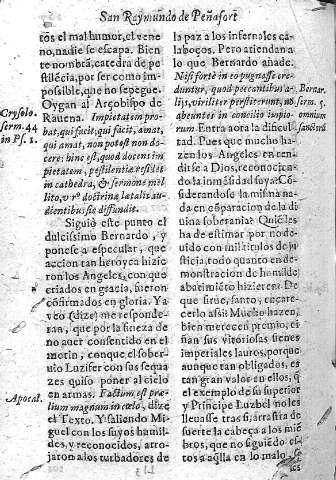 San Raymundo de Peñafort
tos el mal humor, el vene
no, nadie se escapa. Bien
te nombrà, catedra de pe-
stilécia, por ser como im-
possible, que no sepegue.
Oygan al Arçobispo de
Rauena. Impietatem pro-
bat, qui facit, qui facit, amat,
qui amat, non potest non do-
cere: hinc est, quod docens im-
pietatem, pestilentiæ residet
in cathedra, & sermone mel
lito, virº doctrina latalis au-
dientibus sic diffundit.
Crysolo.
serm. 44
in Ps. 1.
Siguiò este punto el
dulcissimo Bernardo, y
ponese a especular, que
accion tan heroyca hizie
ron los Angeles, con que
criados en gracia, fueron
cõfirmados en gloria. Ya
veo (dize) me responde-
ran, que por la fineza de
no auer consentido en el
motin, conque el sober-
uio Luzifer con sus sequa
zes quiso poner al cielo
en armas. Factum est præ-
lium magnum in cœlo, dize
el Texto. Y saliendo Mi-
guel con los suyos humi-
des, y reconocidos, arro-
jaron a los turbadores de
Apocal.
la paz a los infernales ca-
laboços. Pero atiendan a
lo que Bernardo añade.
Nisi fortè in eo pugnasse cre-
duntur, quod peccantibus a-
lijs, viriliter perstiterunt, nõ
abeuntes in concilio impio-
rum. Entra aora la dificul
tad. Pues que mucho ha-
zen los Angeles en rendi-
dirse a Dios, reconocien-
do la inmẽsidad suya: Cõ-
siderandose la misma na-
da, en cõparacion de la di
uina soberania? Quiẽ les
ha de estimar por no de-
uido con milticulos de ju
sticia, todo quanto en de-
monstracion de humilde
abatimiẽto hizieren? De
que sirue, santo, encare-
cerlo assi? Mucho hazen,
bien merecen premio, ci-
ñan sus vitoriosas sienes
imperiales lauros, porque
aunque tan obligados, es
tan gran valor en ellos, q̃
el exemplo de su superior
y Principe Luzbel no los
lleuasse tras si, arrastra de
suerte la cabeça a los miẽ
bros, que no siguiedo es-
tos a aq̃lla en lo malo, se
Bernar.
serm. 5.
omnium
sanctorũ
Ll 3
les